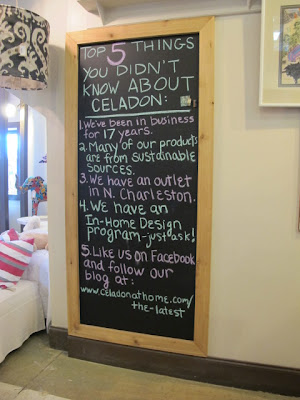 TOP 5 THINGS
YOU DIDN'T
KNOW ABOUT
CELADON:
1. We've been in business
for 17 years.
2. Many of our products
are from sustainable
sources.
3. We have an outlet
in N. Charleston.
4. We have an
In-Home Design
program-just ask!
5. Like us on Facebook
and follow our
blog at:
www.celadonathome.com/
the-latest